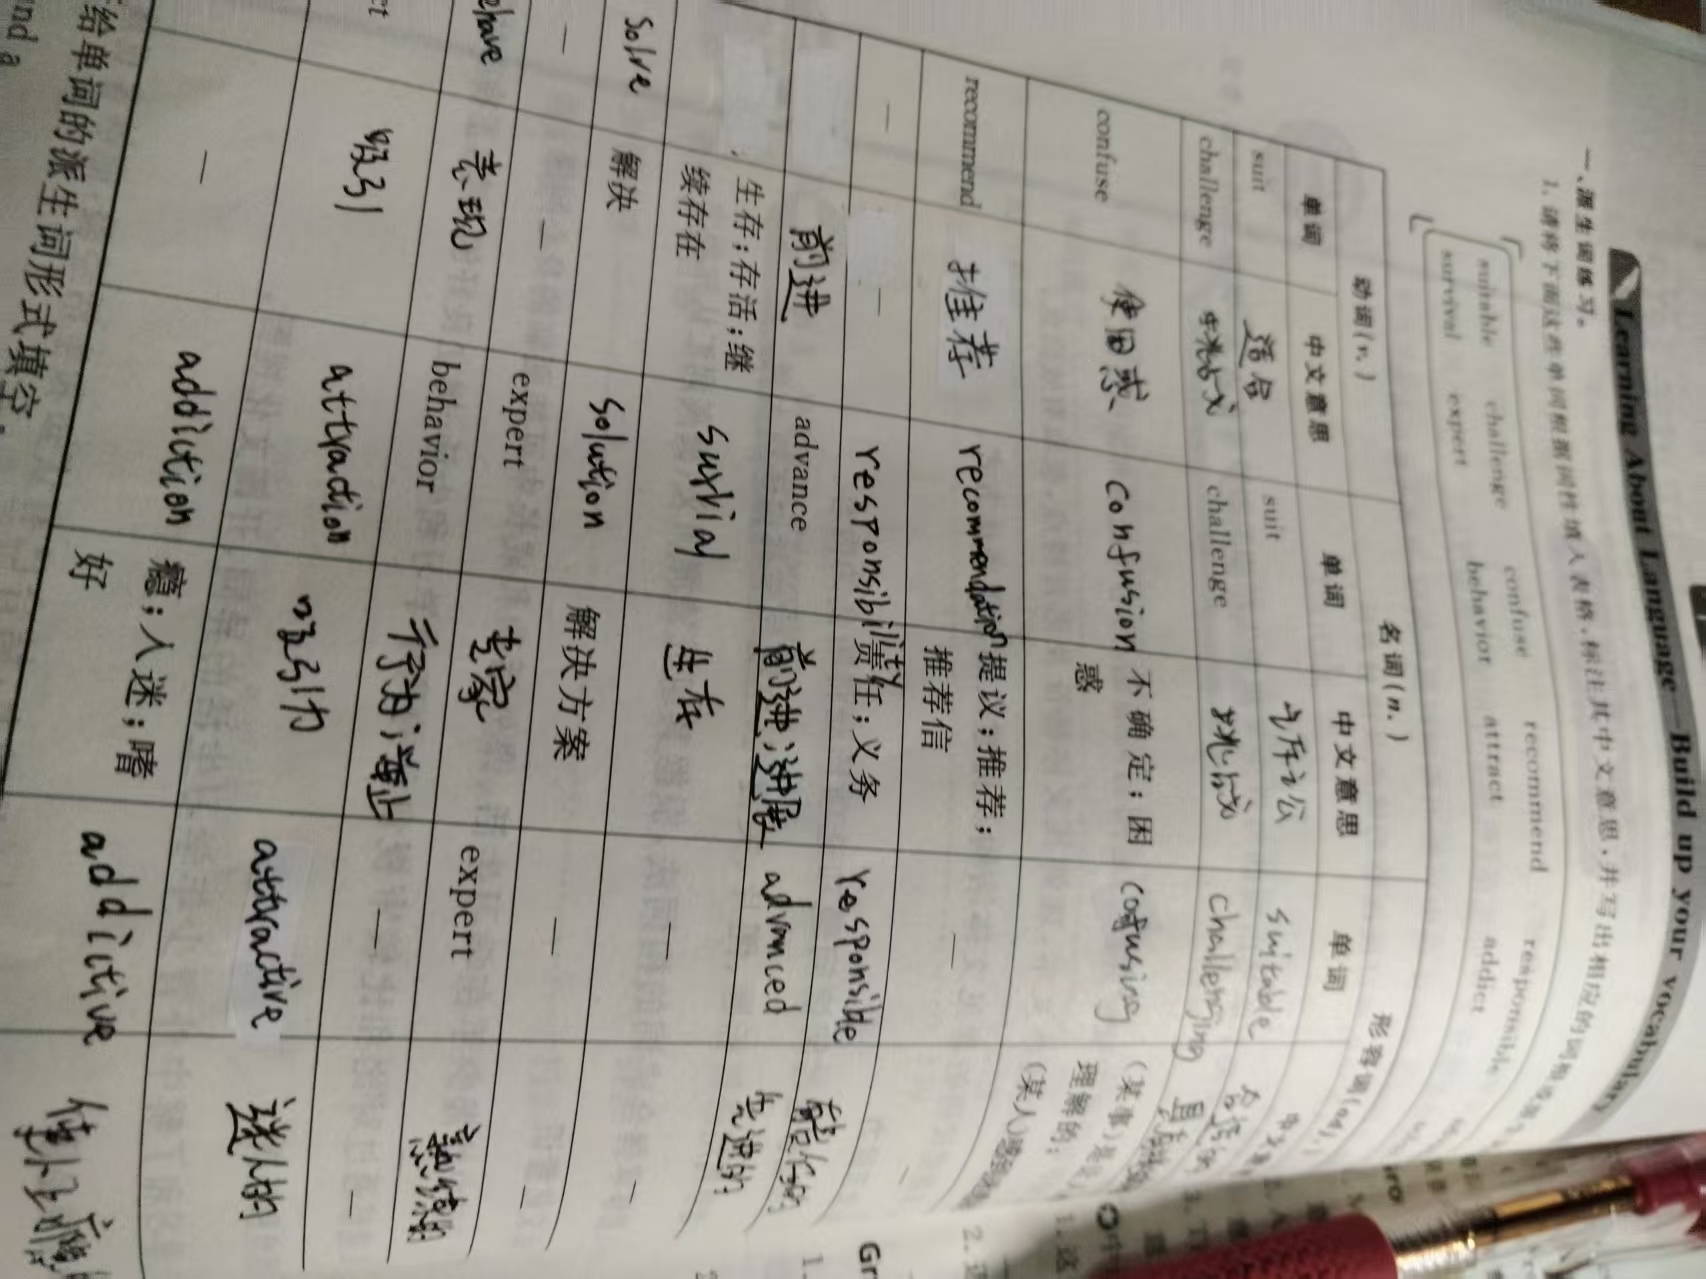 Learning About Language—Build up your vocabulary
一、派生词练习。
1. 请将下面这些单词根据词性填入表格,标注其中文意思,并写出相应的词
suitable challenge confuse recommend responsible
survival expert behavior attract addict
动词(v.) 名词(n.) 形容词(adj.)
单词 中文意思 单词 中文意思 单词
suit 适合 suit suitable 合适的
challenge 挑战 challenge 挑战 challenging
confuse 使困惑 confusion 不确定;困惑 confusing
理解的;
recommend 推荐 recommendation 提议;推荐;推荐信 —
— — responsibility 责任;义务 responsible
前进 advance 前进;进展 advanced 先进的
生存;存活;继续存在 survial 生存 — —
solve 解决 solution 解决方案 — —
— — expert 专家 expert 熟练的
ehave 表现 behavior 行为;举止 — —
ct 吸引 attraction 吸引力 attractive 迷人的
— addiction 瘾;入迷;嗜好 addictive 使人上瘾
给单词的派生词形式填空。